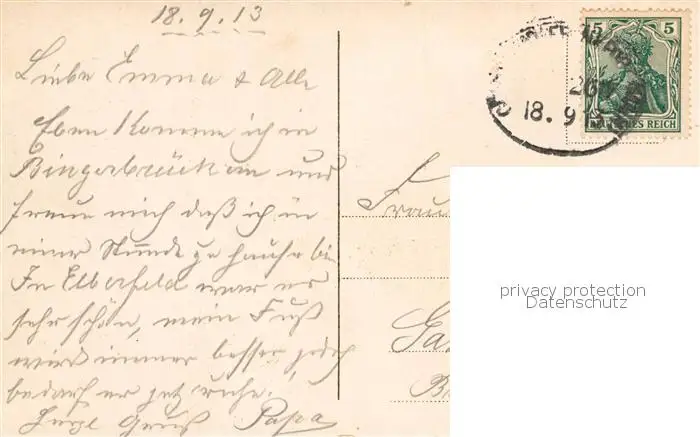 18.9.13
Liebe Emma & Alle
Eben komme ich in
Bingerbrück an und
freue mich daß ich in
einer Stunde zu hause bin
In Elberfeld war es
sehr schön, mein Fuß
wird immer besser jedoch
bedarf er jetz ruhe.
Gruß Papa
5 5
DEUTSCHES REICH
18. 9 13
Frau
privacy protection
Datenschutz